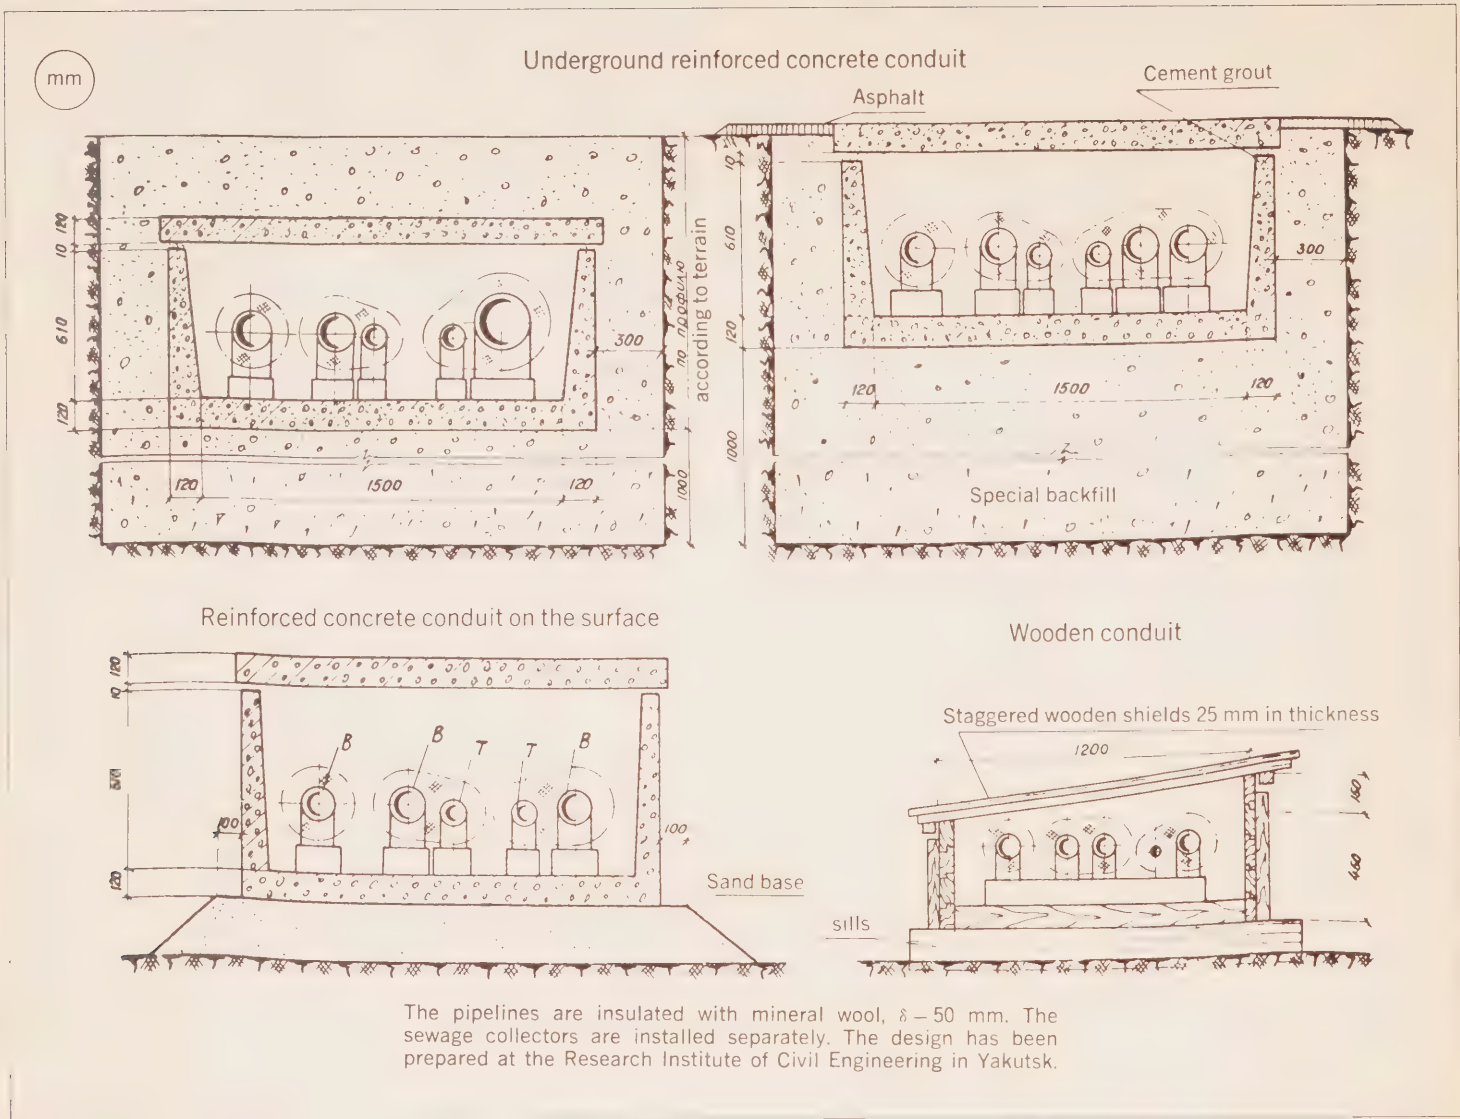 mm
Underground reinforced concrete conduit
Cement grout
Asphalt
120
10
610
120
300
120
1500
120
по профилю
according to terrain
1000
10
610
120
1000
300
120
1500
120
Special backfill
Reinforced concrete conduit on the surface
120
10
120
100
B
B
T
T
B
100
Sand base
Wooden conduit
Staggered wooden shields 25 mm in thickness
1200
160
460
sills
The pipelines are insulated with mineral wool, δ – 50 mm. The
sewage collectors are installed separately. The design has been
prepared at the Research Institute of Civil Engineering in Yakutsk.